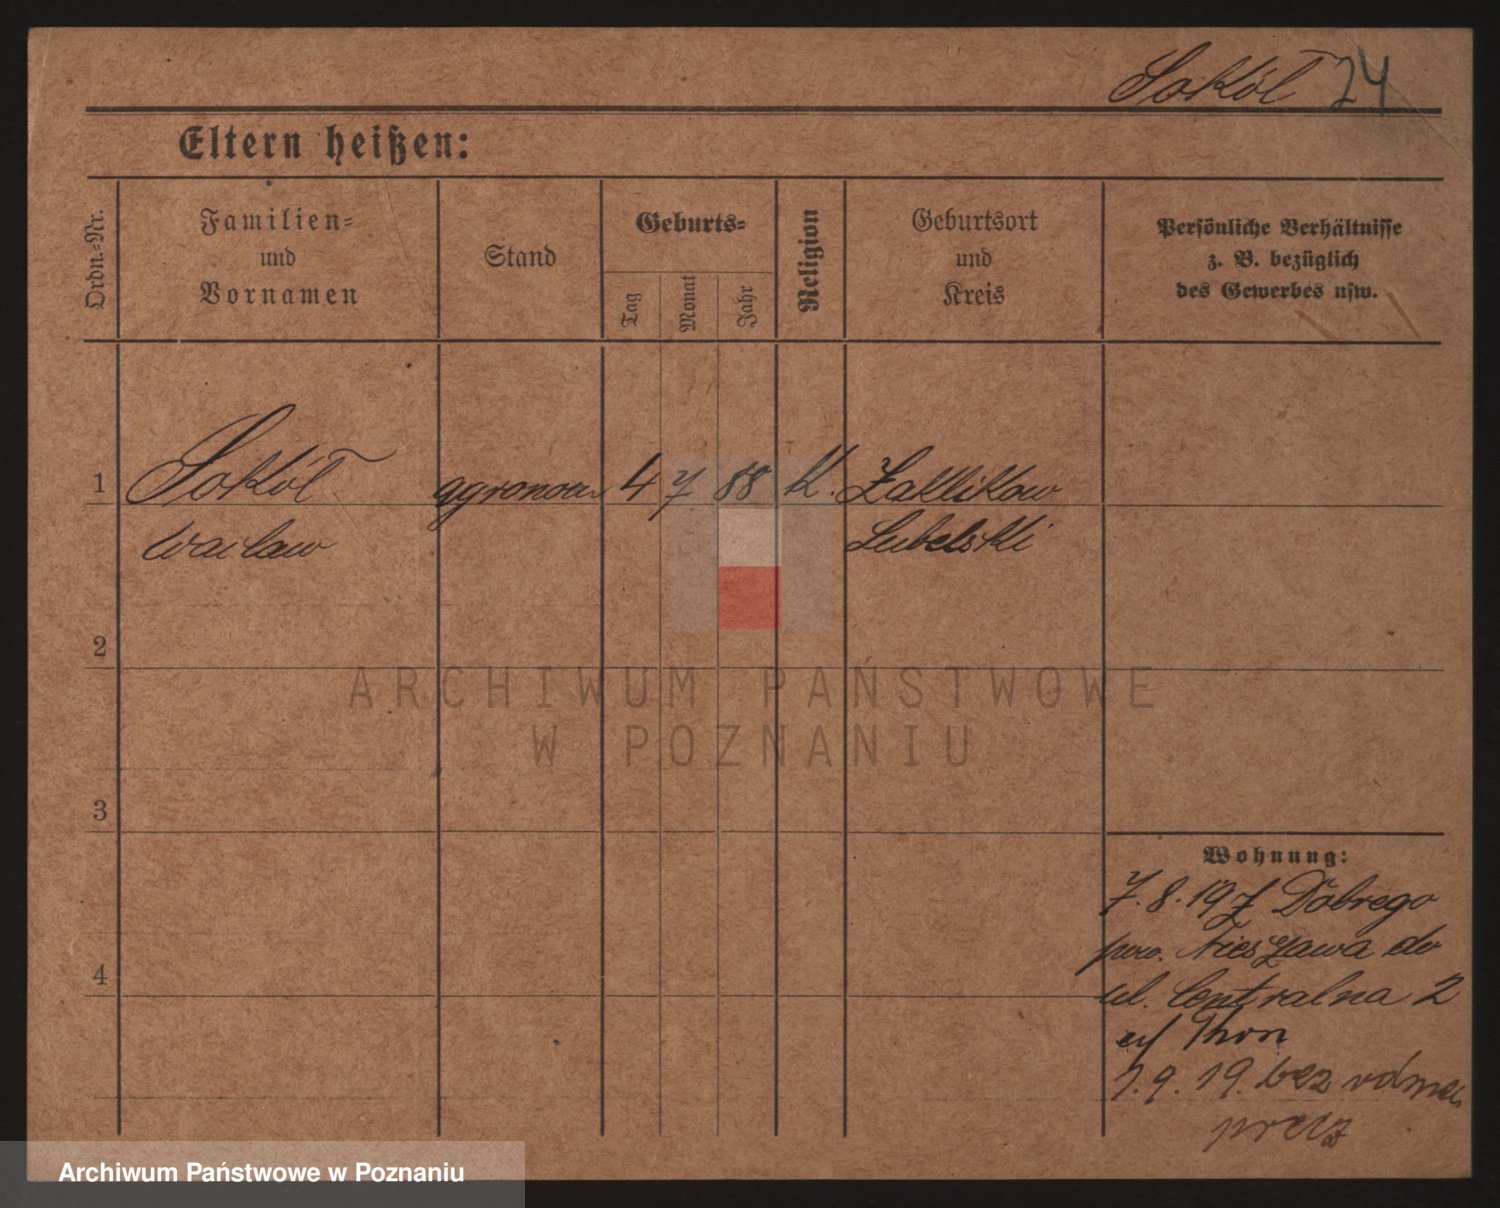 Sokół 24
Eltern heißen:
Ordn.-Nr.
Familien-
und
Vornamen
Stand
Geburts-
Tag
Monat
Jahr
Religion
Geburtsort
und
Kreis
Persönliche Verhältnisse
z. B. bezüglich
des Gewerbes usw.
1 Sokół agronom 4 7 88 K. Zaklikow
Wacław Lubelski
2
3
4
Wohnung:
7.8.19 z Dobrego
pow. Nieszawa do
ul. Centralna 2
Thon
1.9.19. bez
precz
ARCHIWUM PAŃSTWOWE
W POZNANIU
Archiwum Państwowe w Poznaniu